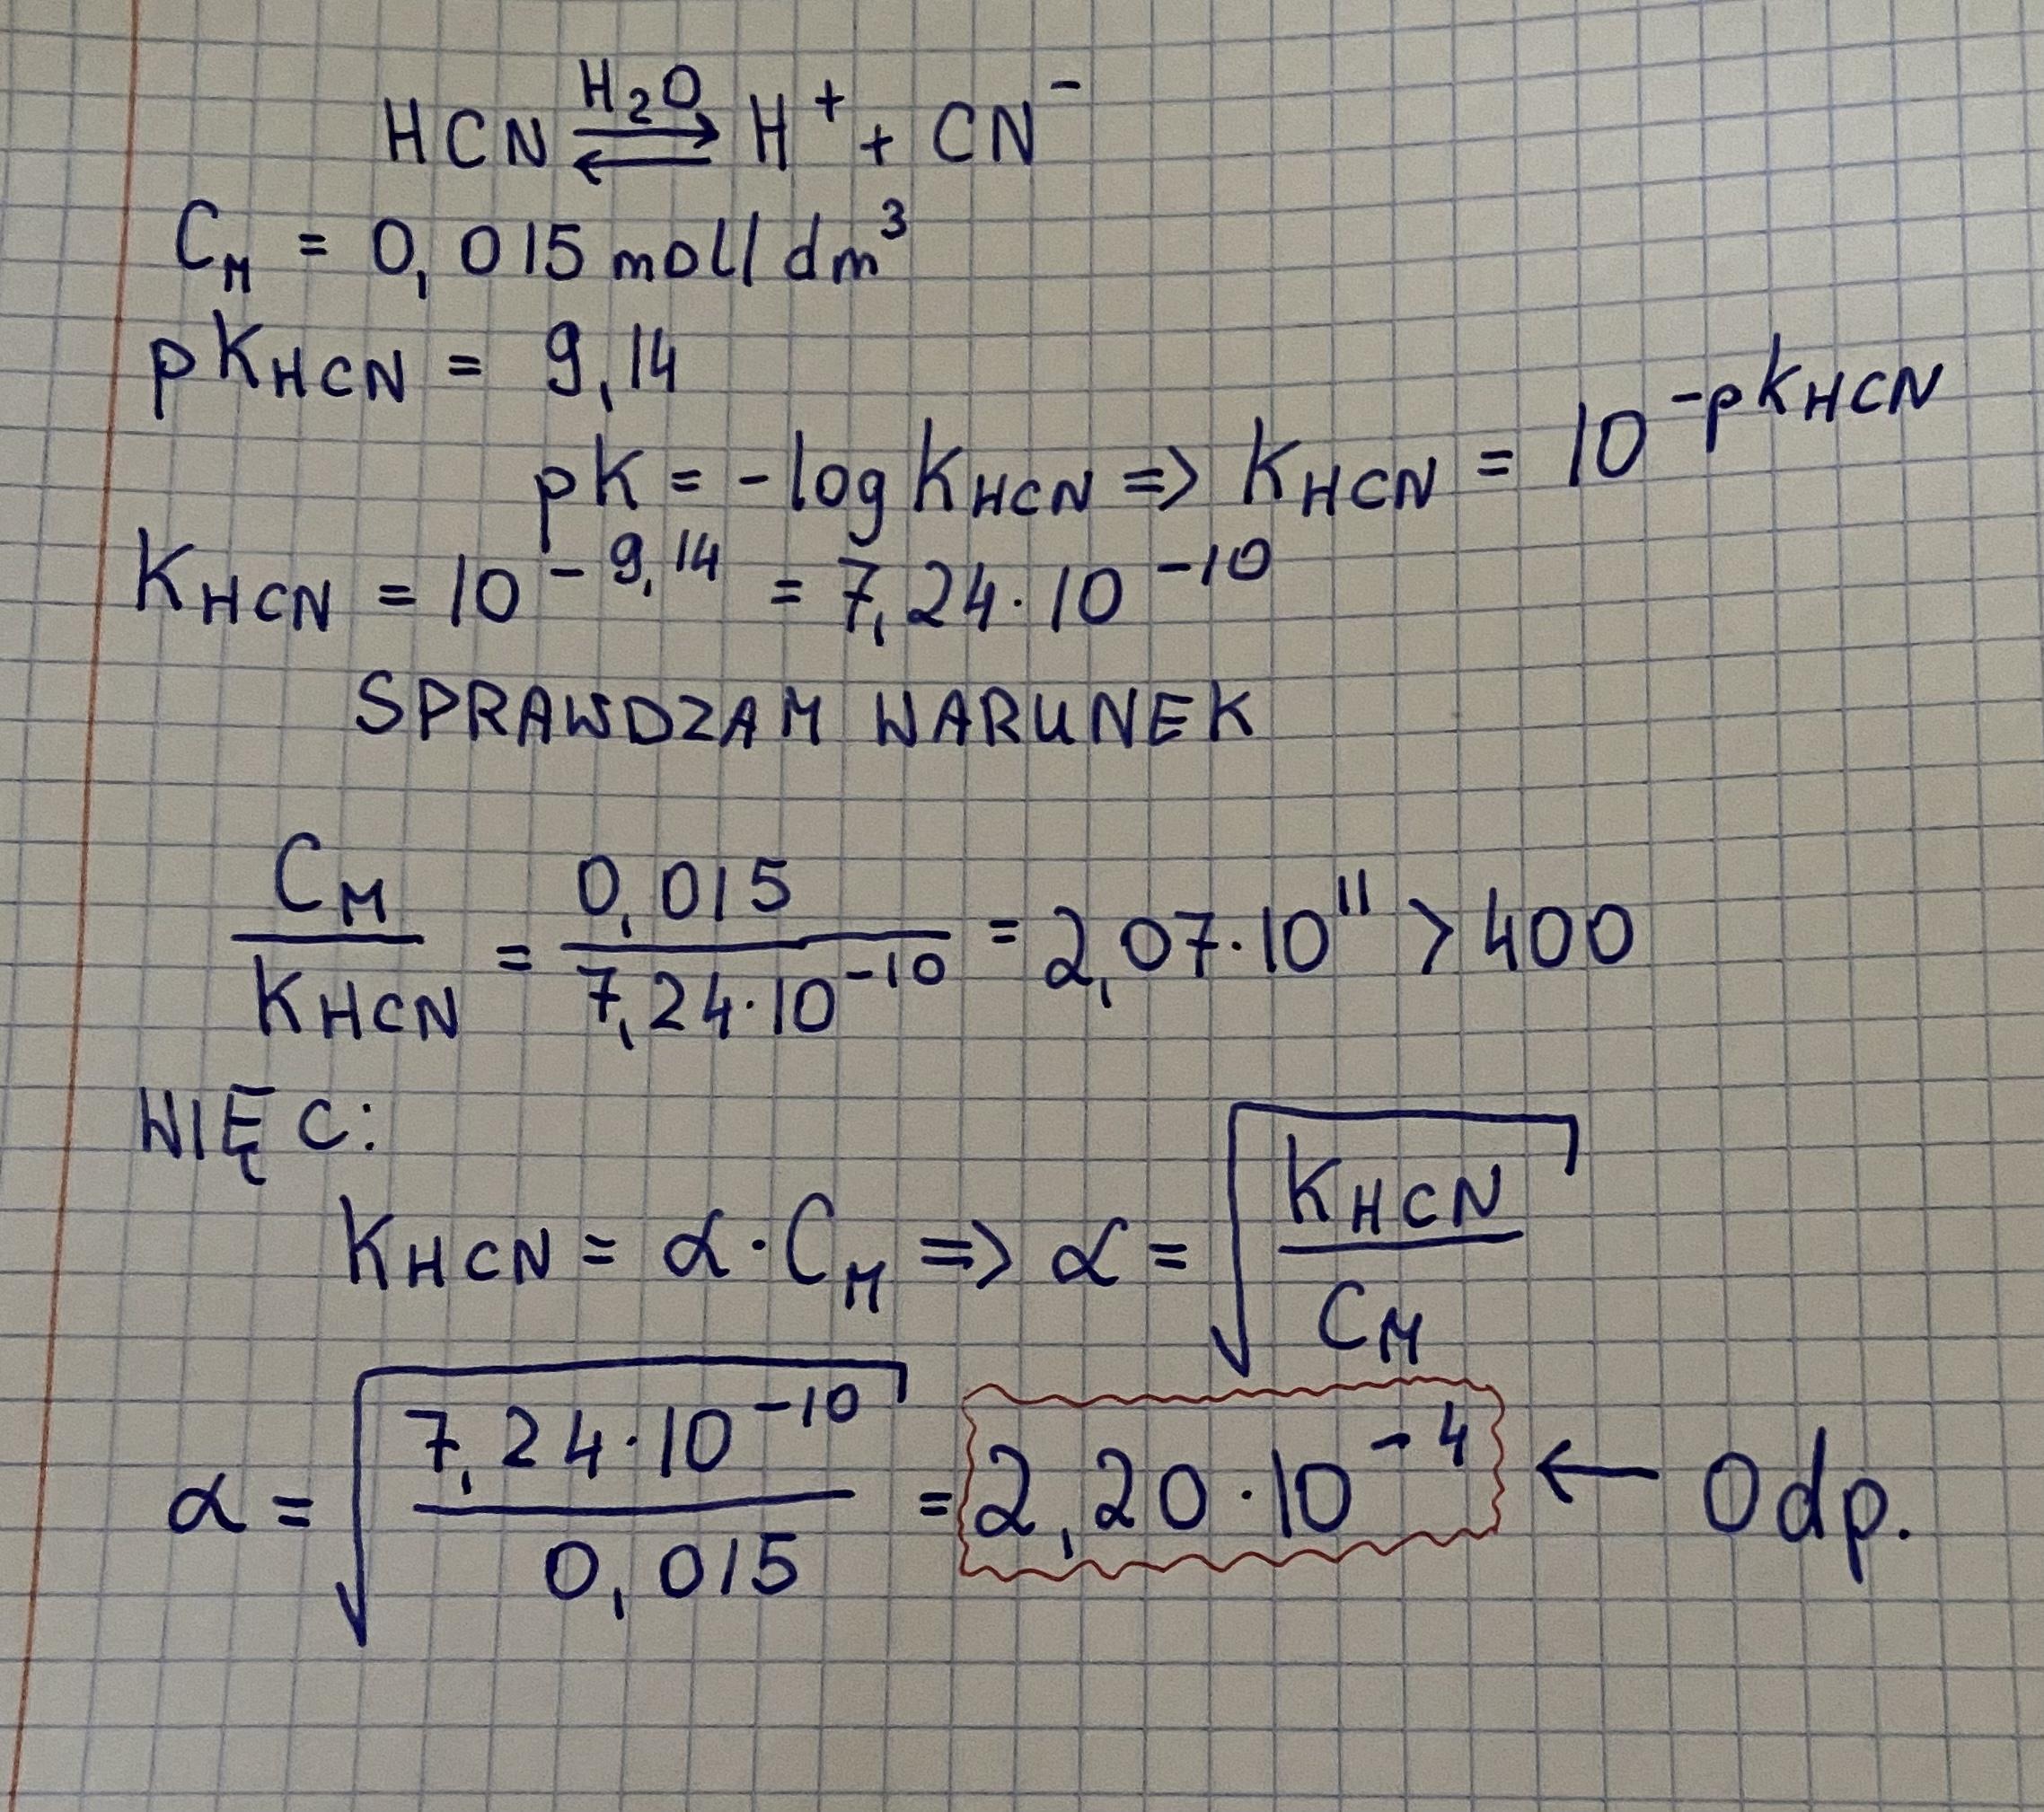 HCN ⇌ H₂O H⁺ + CN⁻
C_M = 0,015 mol/dm³
pK_HCN = 9,14
pK = -log K_HCN => K_HCN = 10^-pK_HCN
K_HCN = 10^-9,14 = 7,24·10^-10
SPRAWDZAM WARUNEK
C_M / K_HCN = 0,015 / 7,24·10^-10 = 2,07·10^11 > 400
WIĘC:
K_HCN = α·C_M => α = √(K_HCN / C_M)
α = √(7,24·10^-10 / 0,015) = 2,20·10^-4 ← Odp.